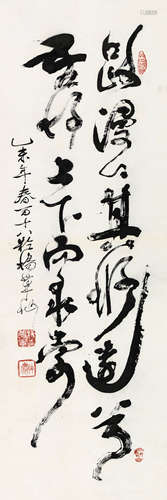 路漫々其修遠兮
吾将上下而求索
乙未年春百十八齡楊草仙